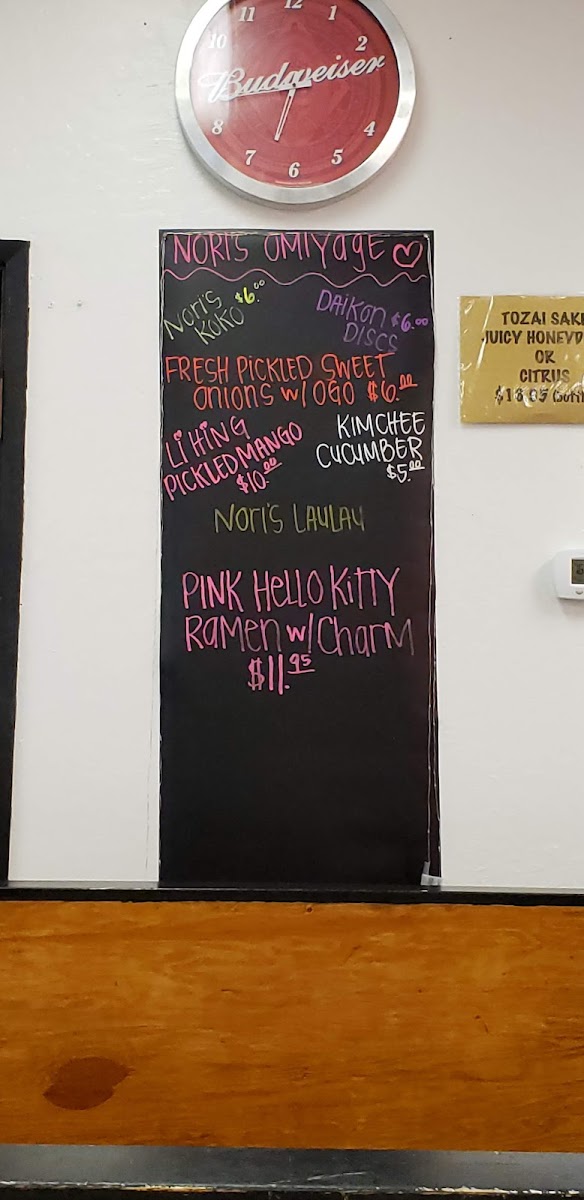 11 12 1
10 2
Budweiser
8 4
7 6 5
NORI'S OMIYAGE
NORI'S $6.00
KOKO
DAIKON $6.00
DISCS
FRESH PICKLED SWEET
ONIONS W/ OGO $6.00
Li HiNG
PICKLED MANGO
$10.00
KIMCHEE
CUCUMBER
$5.00
NORI'S LAULAU
PINK HELLO KITTY
RAMEN W/ CHARM
$11.95
TOZAI SAKE
JUICY HONEYD
OR
CITRUS